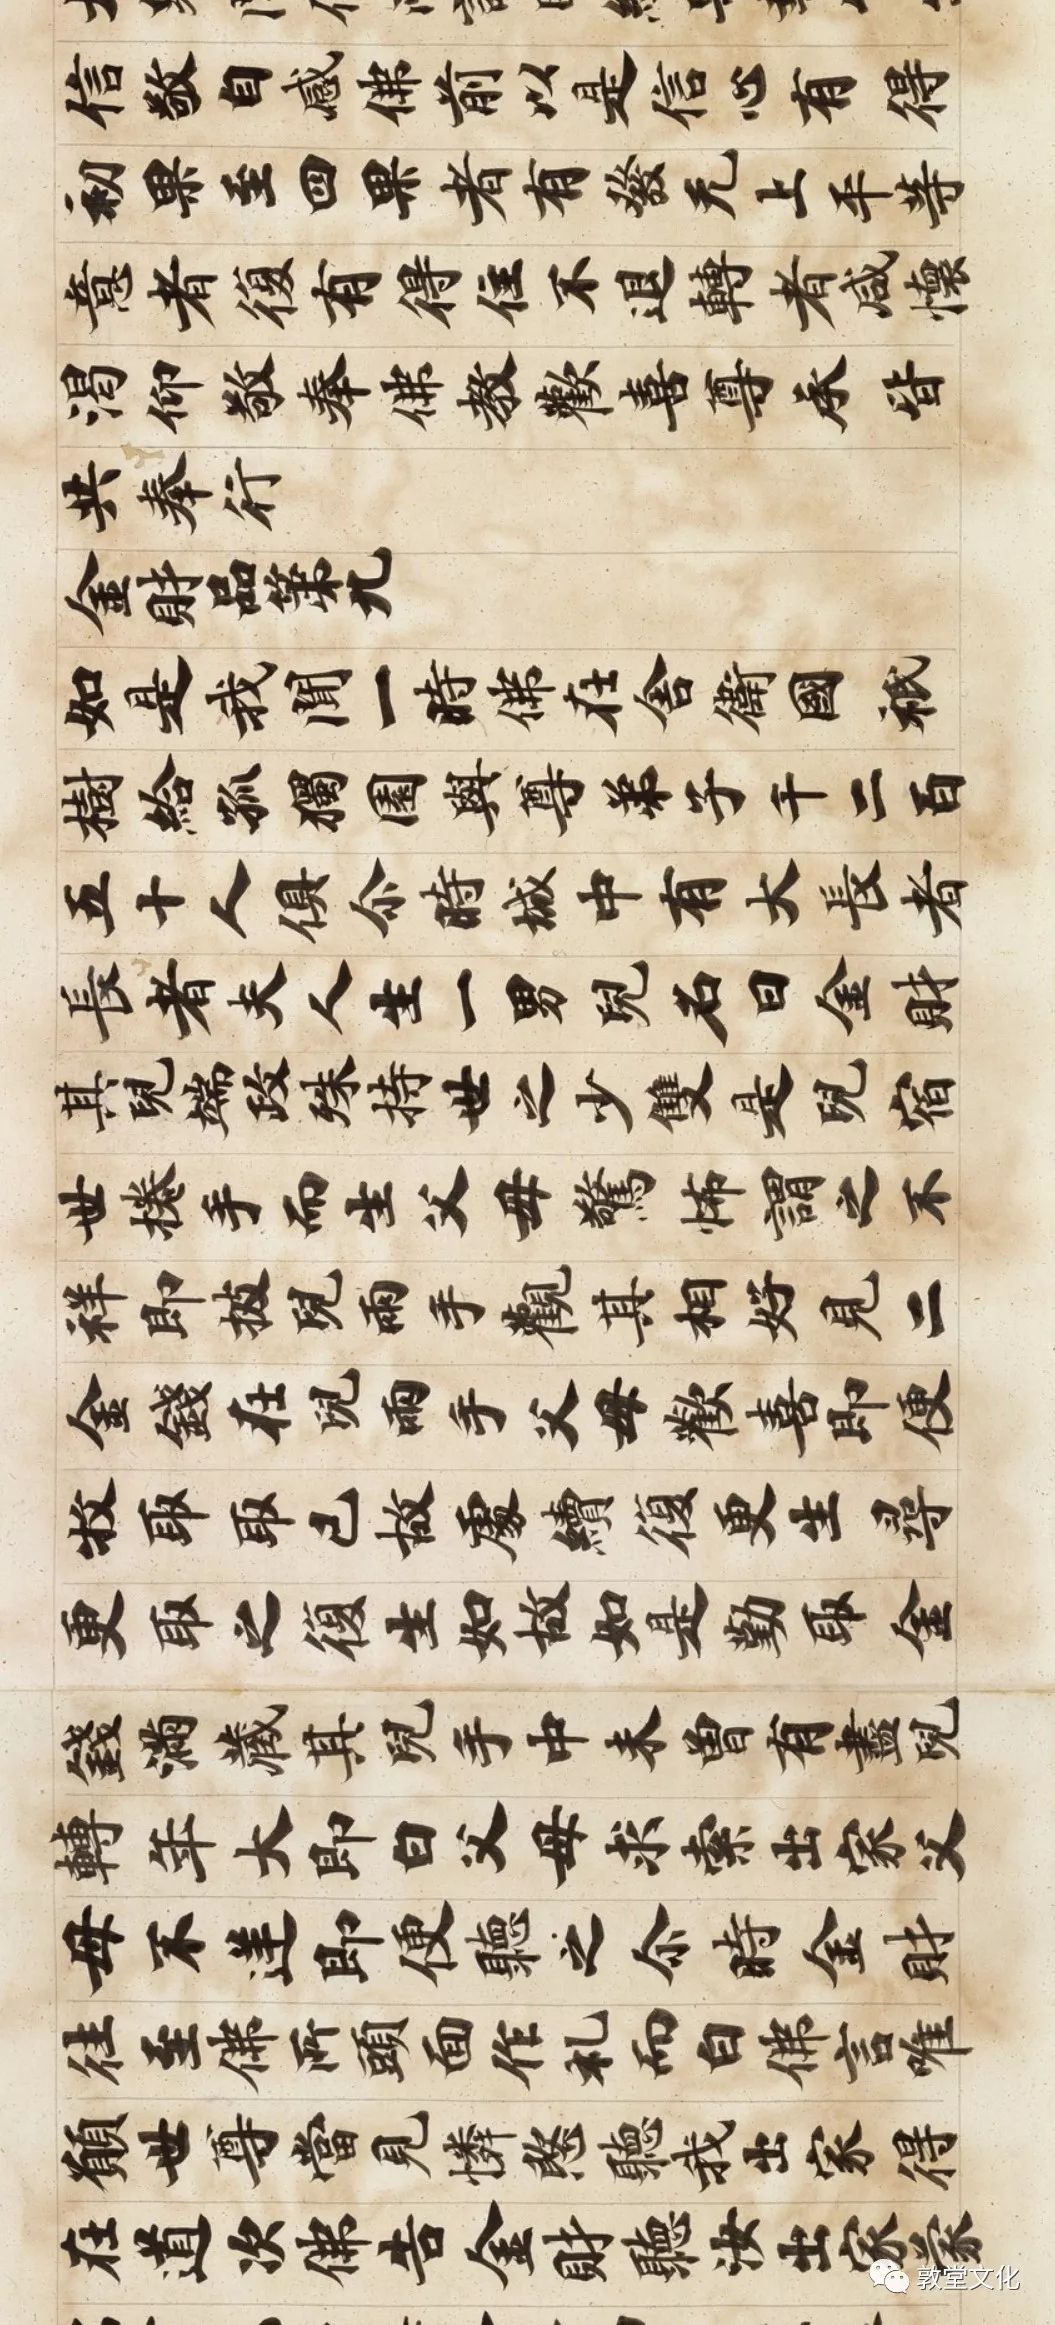 信敬自感佛前以是信心有得
初果至四果者有發无上平等
意者復有得住不退轉者咸懷
渴仰敬奉佛教歡喜尊承皆
共奉行
金財品第九
如是我聞一時佛在舍衛國祇
樹給孤獨園與尊弟子千二百
五十人俱尒時城中有大長者
長者夫人生一男兒名曰金財
其兒端政殊持世之少雙是兒宿
世捲手而生父母驚怖謂之不
祥即披兒兩手觀其相好見二
金錢在兒兩手父母歡喜即便
收取取已故處續復更生尋
更取之復生如故如是勤取金
錢滿藏其兒手中未曾有盡兒
轉年大即白父母求索出家父
母不逆即便聽之尒時金財
往至佛所頭面作礼而白佛言唯
願世尊當見憐愍聽我出家得
在道次佛告金財聽汝出家蒙
敦堂文化